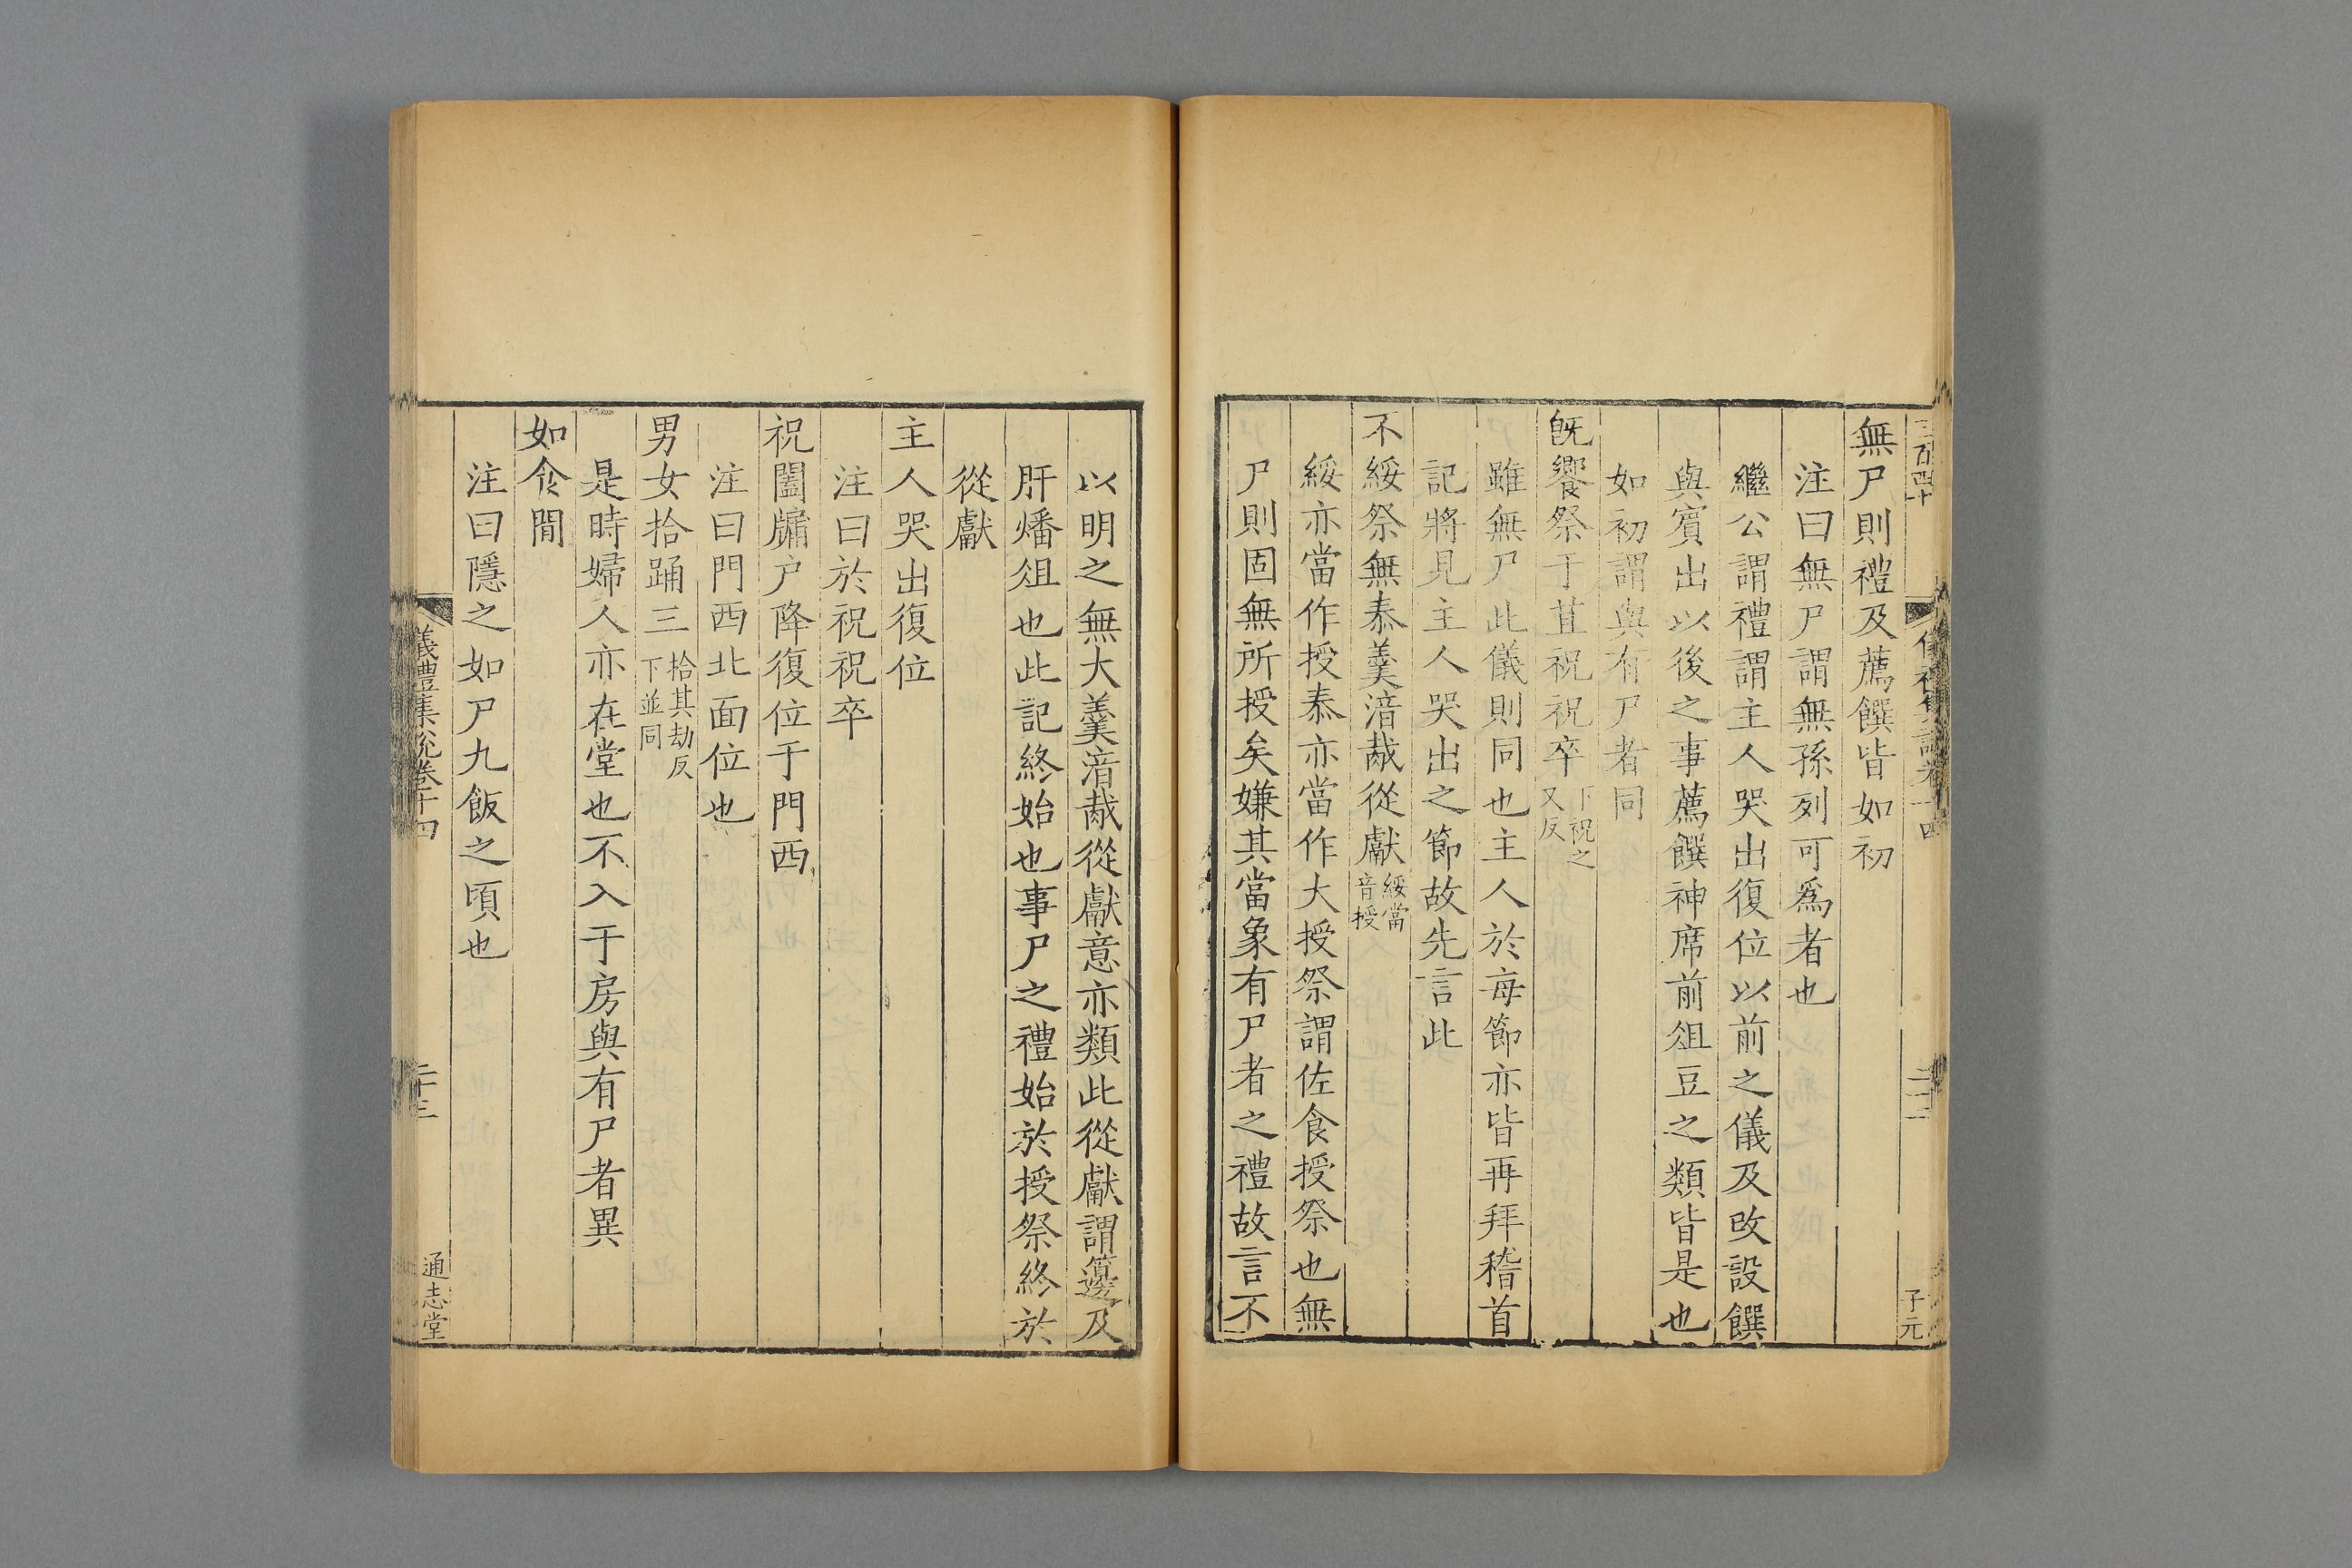 三百四十
儀禮集說卷十四
二十二
子元
無尸則禮及薦饌皆如初
注曰無尸謂無孫列可爲者也
繼公謂禮謂主人哭出復位以前之儀及改設饌
與賓出以後之事薦饌神席前俎豆之類皆是也
如初謂與有尸者同
旣饗祭于苴祝祝卒下祝之又反
雖無尸此儀則同也主人於每節亦皆再拜稽首
記將見主人哭出之節故先言此
不綏祭無泰羹湆胾從獻綏當音授
綏亦當作授泰亦當作大授祭謂佐食授祭也無
尸則固無所授矣嫌其當象有尸者之禮故言不
以明之無大羹湆胾從獻意亦類此從獻謂籩及
肝燔俎也此記終始也事尸之禮始於授祭終於
從獻
主人哭出復位
注曰於祝祝卒
祝闔牖户降復位于門西
注曰門西北面位也
男女拾踊三拾其劫反下並同
是時婦人亦在堂也不入于房與有尸者異
如食閒
注曰隱之如尸九飯之頃也
儀禮集說卷十四
二十三
通志堂